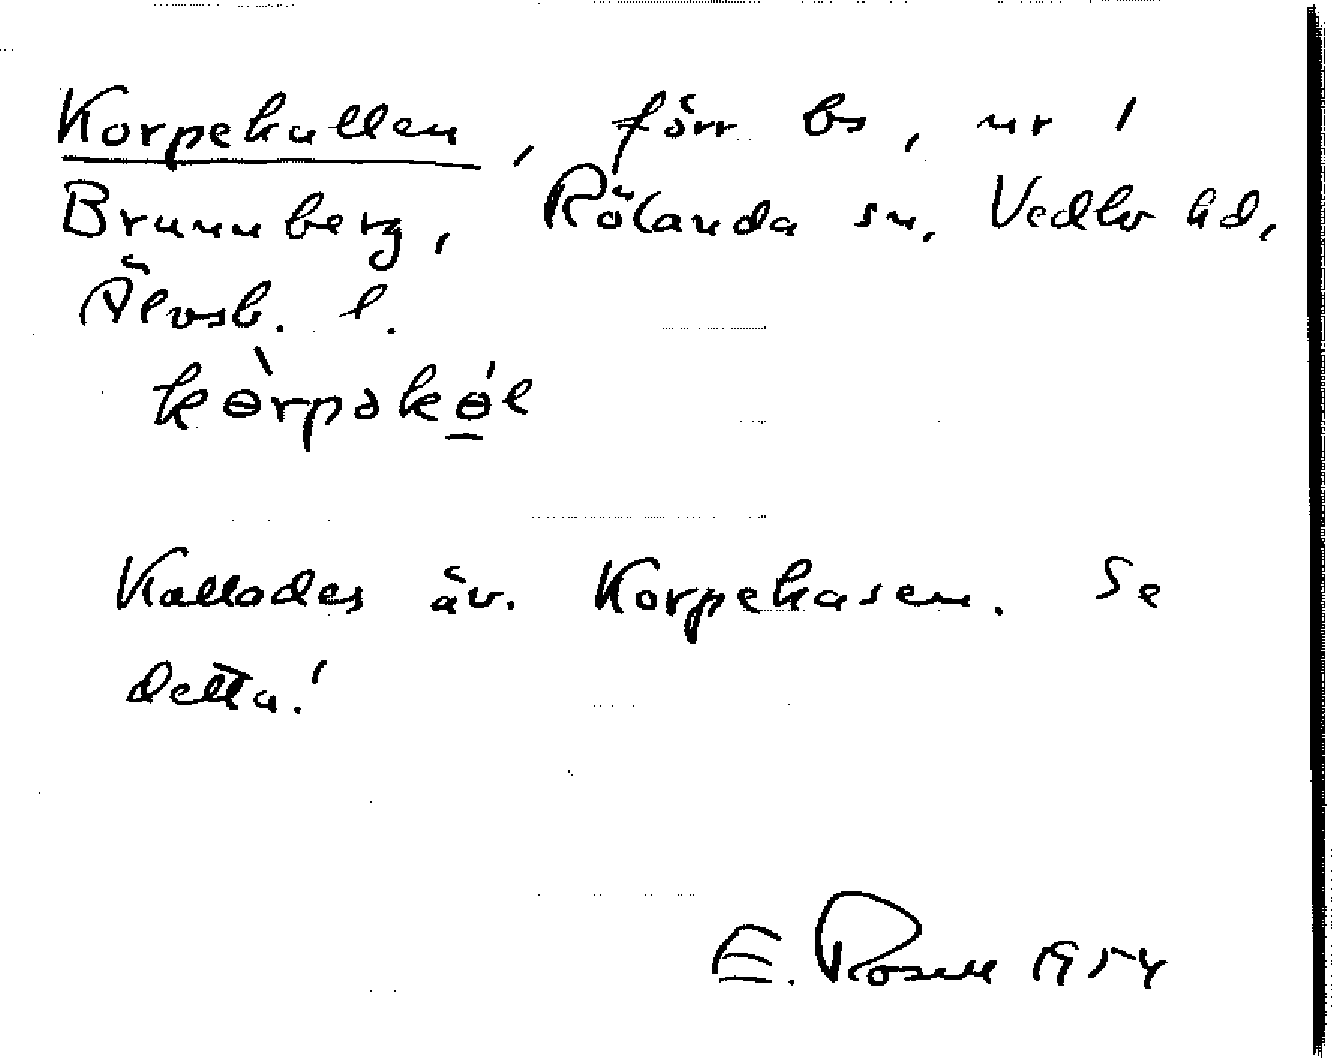 Korpekullen, förr bs, nr 1
Brunnberg, Rölanda sn, Vedbo hd,
Älvsb. l.
kɵ̀rpəkɵ̠́l
Kallades äv. Korpekasen. Se
detta!
E. Rosell 1954